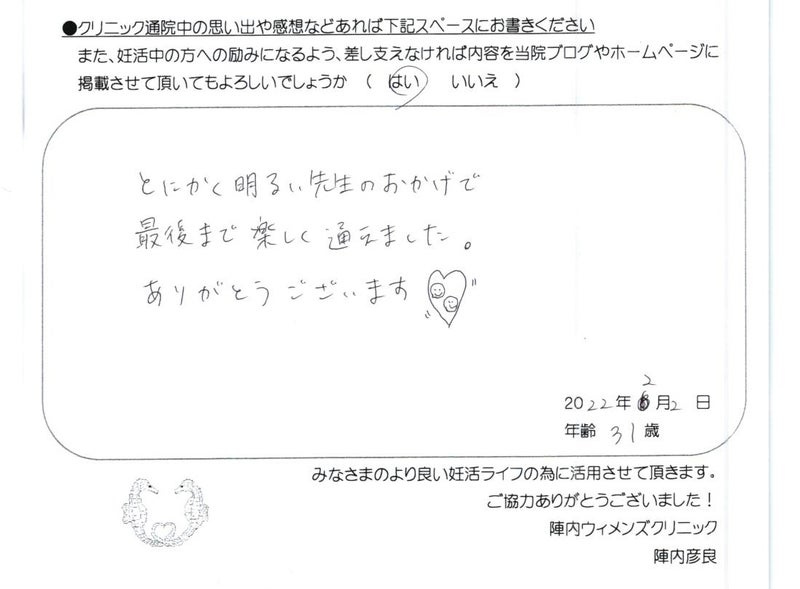 ●クリニック通院中の思い出や感想などあれば下記スペースにお書きください
また、妊活中の方への励みになるよう、差し支えなければ内容を当院ブログやホームページに
掲載させて頂いてもよろしいでしょうか ( はい いいえ )
とにかく明るい先生のおかげで
最後まで楽しく通えました。
ありがとうございます
2
2022年 月2日
年齢 31歳
みなさまのより良い妊活ライフの為に活用させて頂きます。
ご協力ありがとうございました!
陣内ウィメンズクリニック
陣内彦良